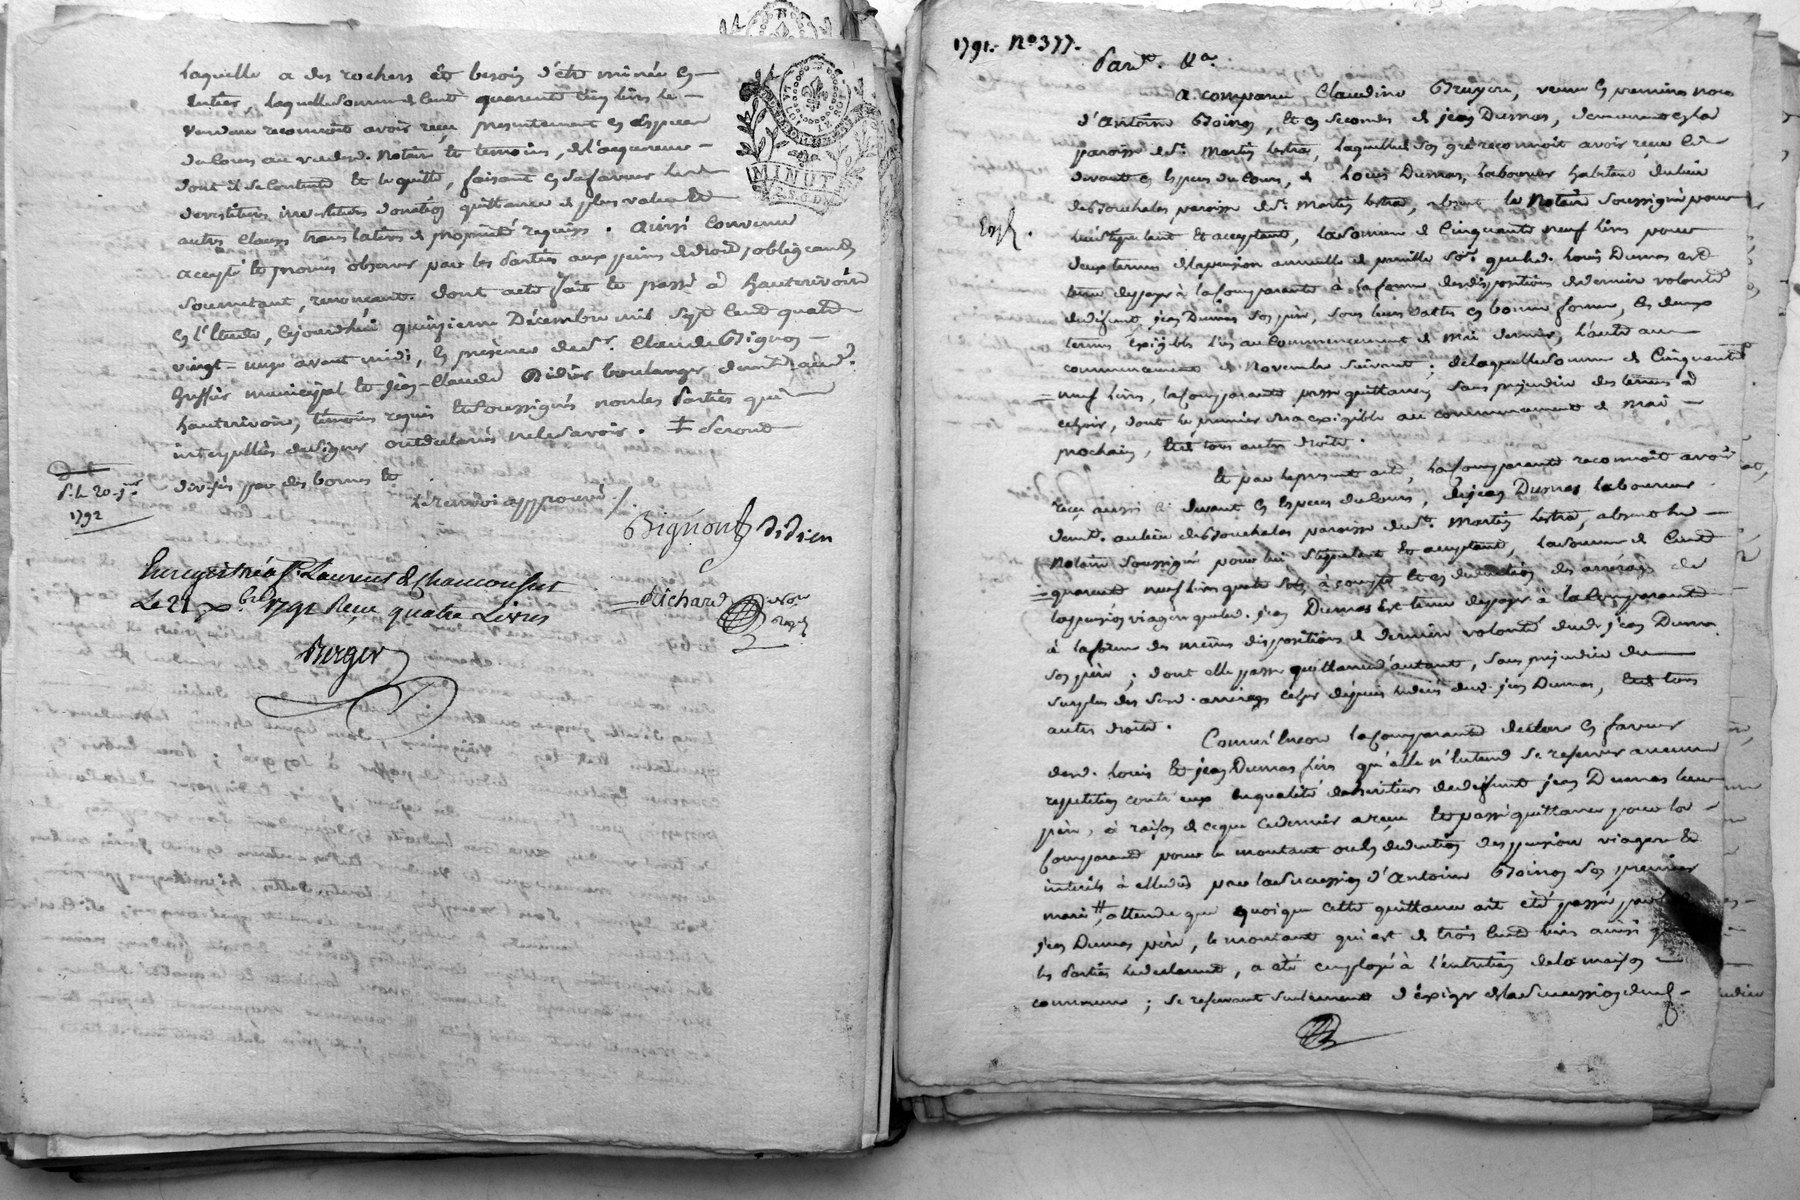 laquelle a des rochers et besoin d'etre minée en
entier, laquelle somme de cent quarente cinq livres le
vendeur reconnoit avoir reçu presentement en especes
du cours au vu dud. Notaire et temoins, de l'acquereur
dont il se contente et le quitte, faisant en sa faveur
devestitures investitures donation quittance de plus value et
autres clauses translatives de propriété requises. Ainsi convenu
accepté et promis observer par les parties aux peines de droit, obligeants
soumettant, renonceant. Dont acte fait et passé à hauterivoire
en l'Etude, cejourdhui quinzieme Décembre mil sept cent quatre
vingt-onze avant midi, en présence de Sr. Claude Bignon
huissier municipal et Jean-Claude Didier boulanger demt. aud.
hauterivoire, témoins requis et soussignés non les Parties qui
interpellées de signer ont declarés ne le savoir. ‡
divisés par des bornes et
le renvoi approuvé /.
P. le 20. jer
1792
Bignon Didier
Richard Nore
Royal
Enregistré a St. Laurent de Chamousset
Le 21 Xbre 1791 Reçu quatre Livres
Berger
LA LOI LE ROI
MINUT
1791. No 377.
Pard. &a.
Exp.
A comparu Claudine Bruyere, veuve en premieres noces
d'Antoine Boinon, et en secondes de jean Dumas, demeurante en la
paroisse de St. Martin lestra, laquelle de son gré reconnoit avoir reçu ci
devant en espèces du cours, de Louis Dumas, laboureur habitant du lieu
des Bouchalas paroisse de St. Martin lestra, absent le Notaire soussigné pour
lui stipulant et acceptant, la somme de Cinquante neuf livres pour
deux termes de la pension annuelle de pareille Some. que led. Louis Dumas est
tenu de payer à la Comparante à la forme des dispositions de derniere volonté
de defunt jean Dumas son père, sous leurs dattes en bonne forme, les deux
termes exigibles l'un au commencement de Mai dernier, l'autre au
commencement de Novembre suivant; de laquelle somme de Cinquante
neuf livres, la Comparante passe quittance, sans prejudice des termes à
echoir, dont le premier sera exigible au commencement de Mai
prochain, et de tous autres droits.
Et par le present acte, la Comparante reconnoit avoir
reçu aussi ci devant en espèces du cours, de jean Dumas laboureur
demt. au lieu des Bouchalas paroisse de St. Martin lestra, absent le
Notaire soussigné pour lui stipulant et acceptant, la somme de Cent
quarente neuf livres quatre sols, à compte et en deduction des arrérages de
la pension viagere que led. jean Dumas est tenu de payer à la Comparante
à la forme des mêmes dispositions de derniere volonté dud. jean Dumas
son père; dont elle passe quittance d'autant, sans prejudice du
surplus des susd. arrérages echus depuis le décès dud. jean Dumas, et de tous
autres droits.
Comme encore la Comparante declare en faveur
desd. Louis et jean Dumas fils qu'elle n'entend se reserver aucune
repetition contr'eux en qualité d'heritiers de defunt jean Dumas leur
père, à raison de ce que ce dernier a reçu et passé quittance pour la
Comparante pour le montant ou en deduction des pension viagere et
interêts à elle dûs par la succession d'Antoine Boinon son premier
mari, attendu que quoique cette quittance ait été passée par
jean Dumas père, le montant qui est de trois cent livres ainsi que
les Parties le declarent, a été employé à l'entretien de la maison
commune; se reservant seulement d'exiger de la succession dud.